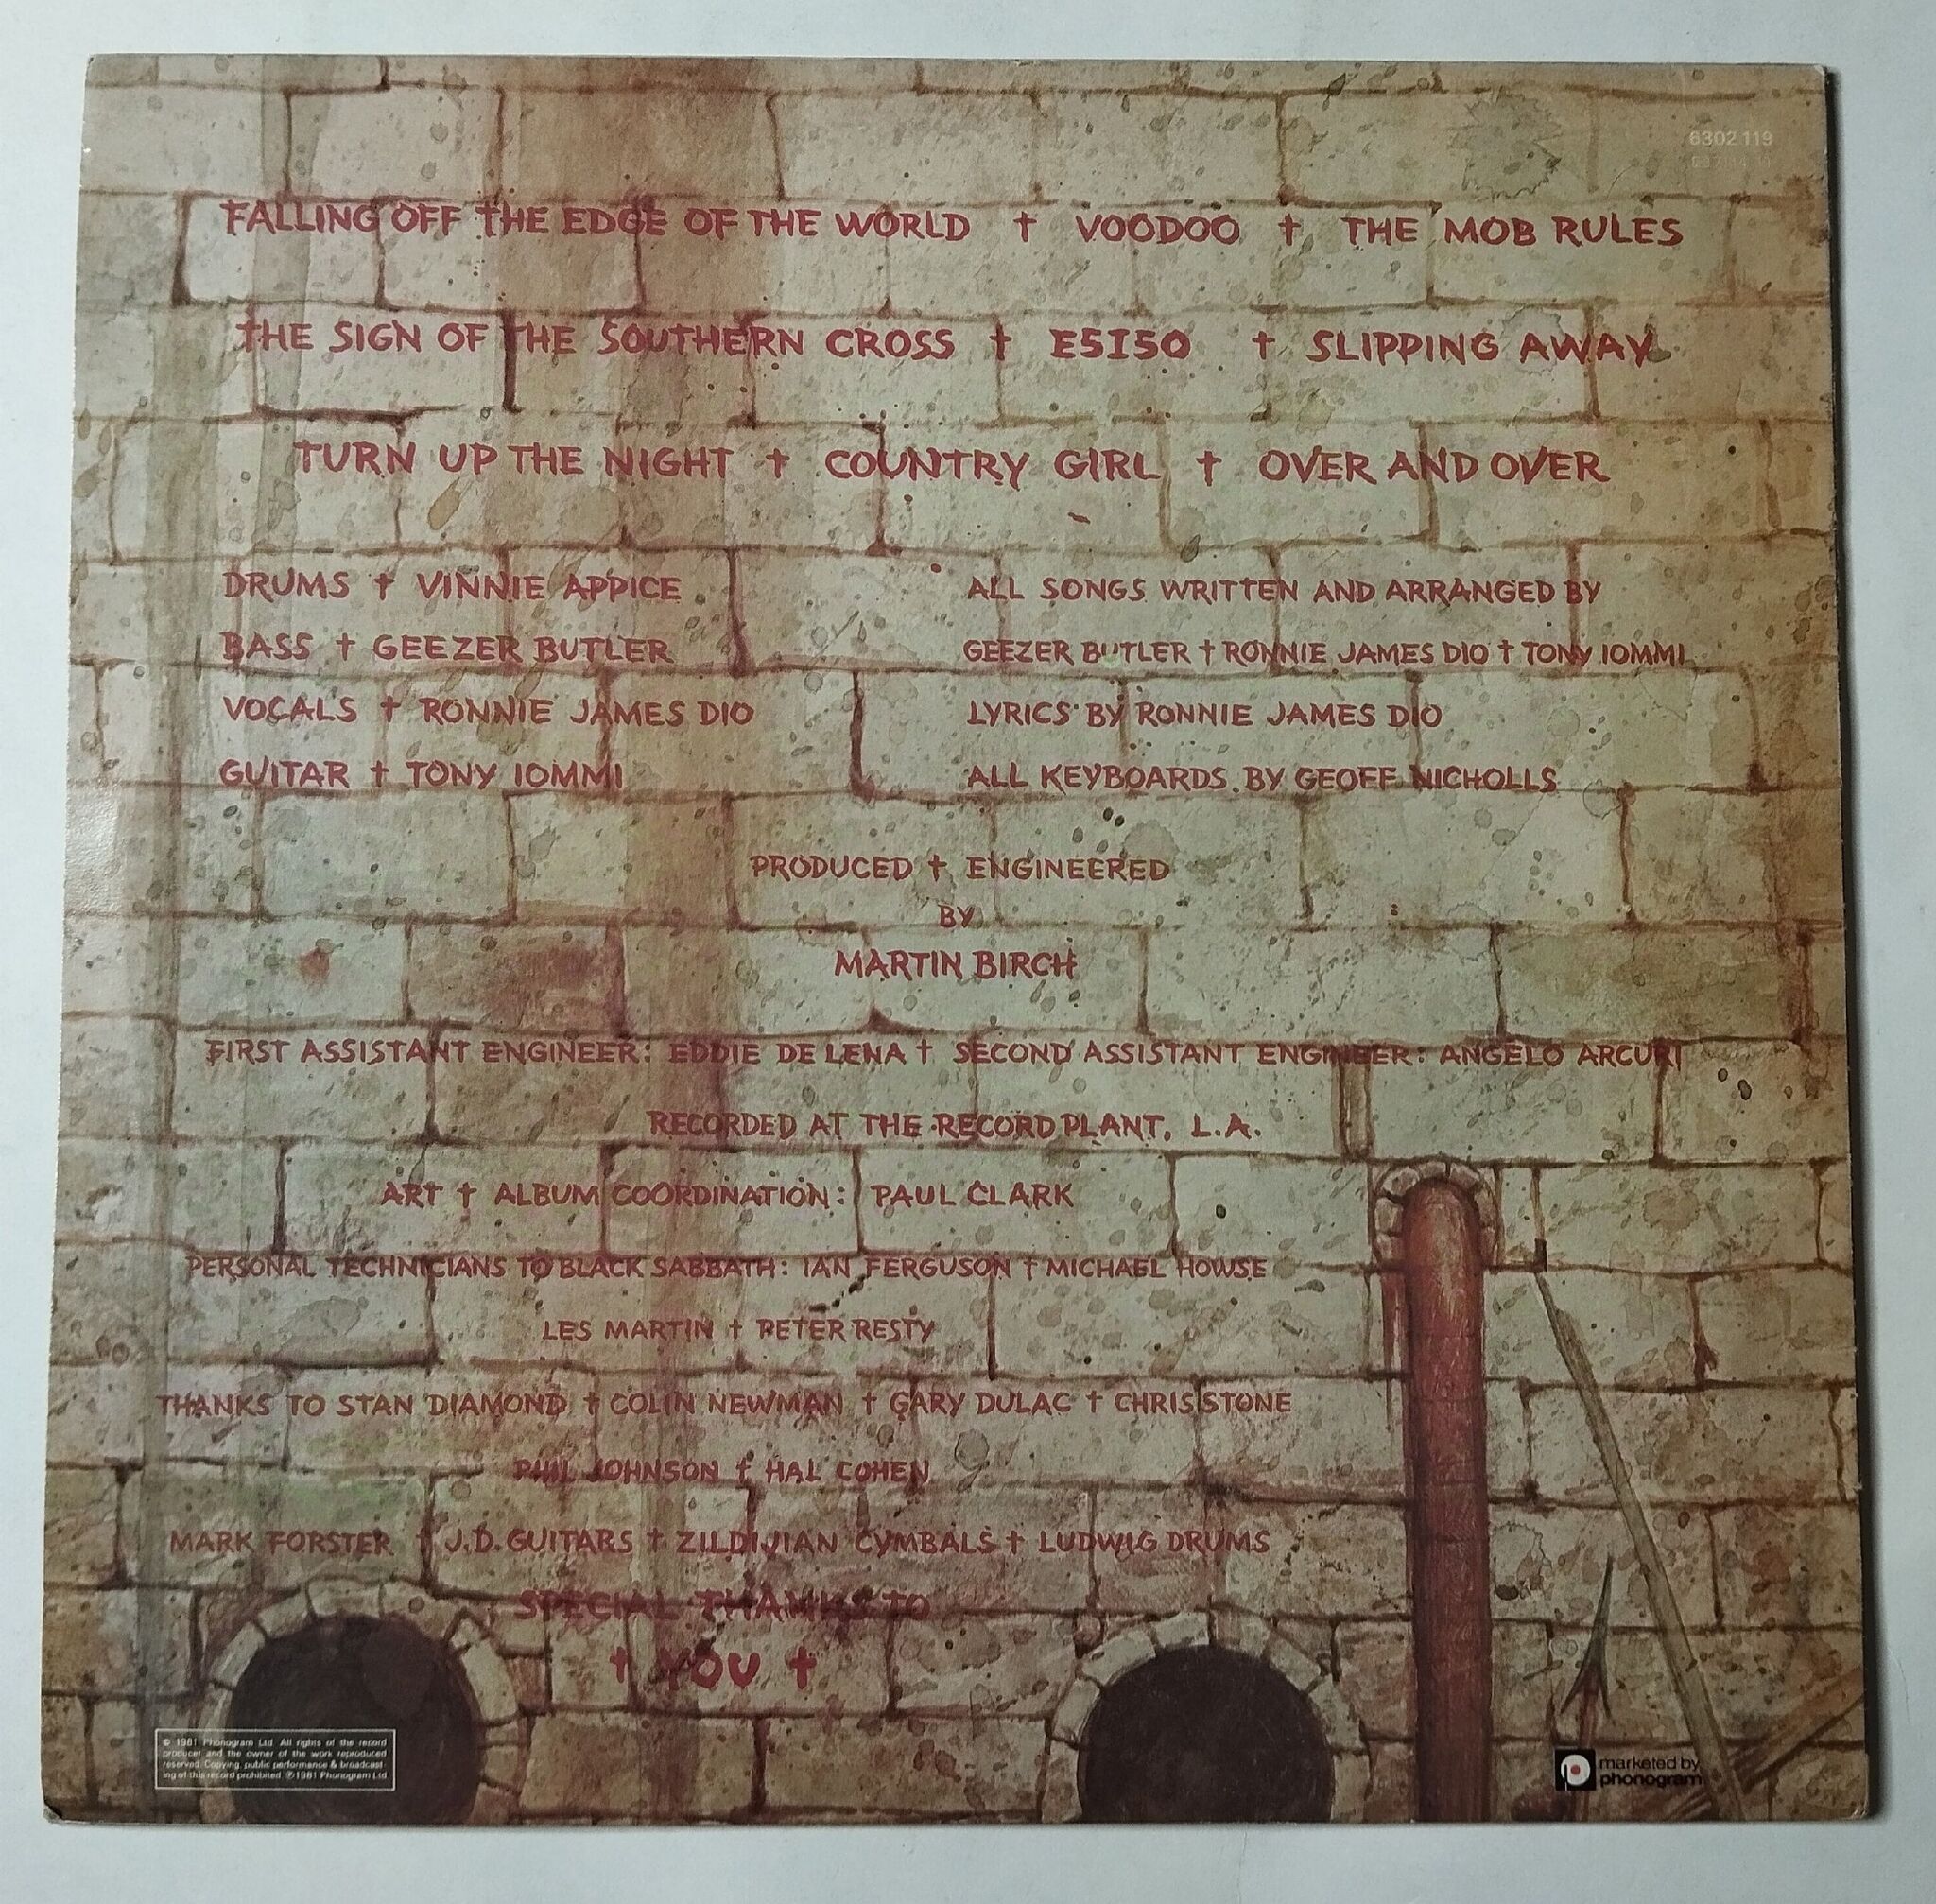 6302 119
FALLING OFF THE EDGE OF THE WORLD † VOODOO † THE MOB RULES
THE SIGN OF THE SOUTHERN CROSS † E5150 † SLIPPING AWAY
TURN UP THE NIGHT † COUNTRY GIRL † OVER AND OVER
DRUMS † VINNIE APPICE
BASS † GEEZER BUTLER
VOCALS † RONNIE JAMES DIO
GUITAR † TONY IOMMI
ALL SONGS WRITTEN AND ARRANGED BY
GEEZER BUTLER † RONNIE JAMES DIO † TONY IOMMI
LYRICS BY RONNIE JAMES DIO
ALL KEYBOARDS BY GEOFF NICHOLLS
PRODUCED † ENGINEERED
BY
MARTIN BIRCH
FIRST ASSISTANT ENGINEER: EDDIE DE LENA † SECOND ASSISTANT ENGINEER: ANGELO ARCURI
RECORDED AT THE RECORD PLANT, L.A.
ART † ALBUM COORDINATION: PAUL CLARK
PERSONAL TECHNICIANS TO BLACK SABBATH: IAN FERGUSON † MICHAEL HOWSE
LES MARTIN † PETER RESTY
THANKS TO STAN DIAMOND † COLIN NEWMAN † GARY DULAC † CHRIS STONE
PHIL JOHNSON † HAL COHEN
MARK FORSTER † J.D. GUITARS † ZILDIJIAN CYMBALS † LUDWIG DRUMS
SPECIAL THANKS TO
† YOU †
© 1981 Phonogram Ltd. All rights of the record
producer and the owner of the work reproduced
reserved. Copying, public performance & broadcast-
ing of this record prohibited. ℗ 1981 Phonogram Ltd.
marketed by
phonogram